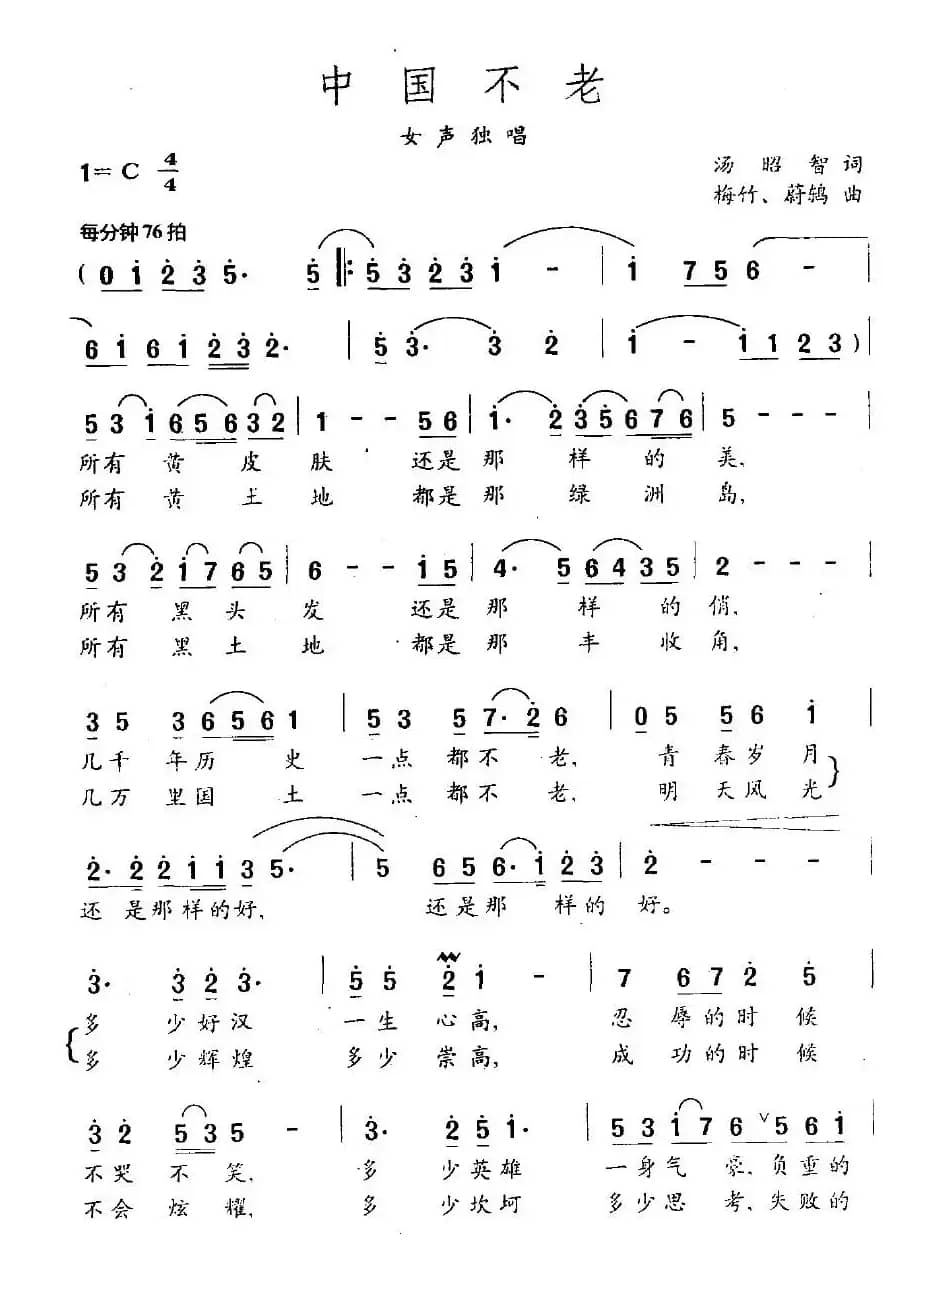 中国不老
女声独唱
1=C 4/4
汤昭智词
梅竹、蔚鸫曲
每分钟76拍
(0 i 2 3 5· 5 ‖: 5 3 2 3 | i - | i 7 5 6 -
6 i 6 i 2 3 2· | 5 3· 3 2 | i - i i 2 3) |
5 3 i 6 5 6 3 2 | 1 - - 5 6 | i· 2 3 5 6 7 6 | 5 - - - |
所有黄皮肤还是那样的美,
所有黄土地都是那绿洲岛,
5 3 2 i 7 6 5 | 6 - - i 5 | 4· 5 6 4 3 5 | 2 - - - |
所有黑头发还是那样的俏,
所有黑土地都是那丰收角,
3 5 3 6 5 6 1 | 5 3 5 7· 2 6 | 0 5 5 6 i |
几千年历史一点都不老, 青春岁月
几万里国土一点都不老, 明天风光
2· 2 2 i i 3 5· | 5 6 5 6· i 2 3 | 2 - - - |
还是那样的好, 还是那样的好。
3· 3 2 3· | 5 5 2 i - | 7 6 7 2 5 |
多少好汉一生心高, 忍辱的时候
多少辉煌多少崇高, 成功的时候
3 2 5 3 5 - | 3· 2 5 i· | 5 3 i 7 6 ∨ 5 6 i |
不哭不笑, 多少英雄一身气豪、负重的
不会炫耀, 多少坎坷多少思考、失败的